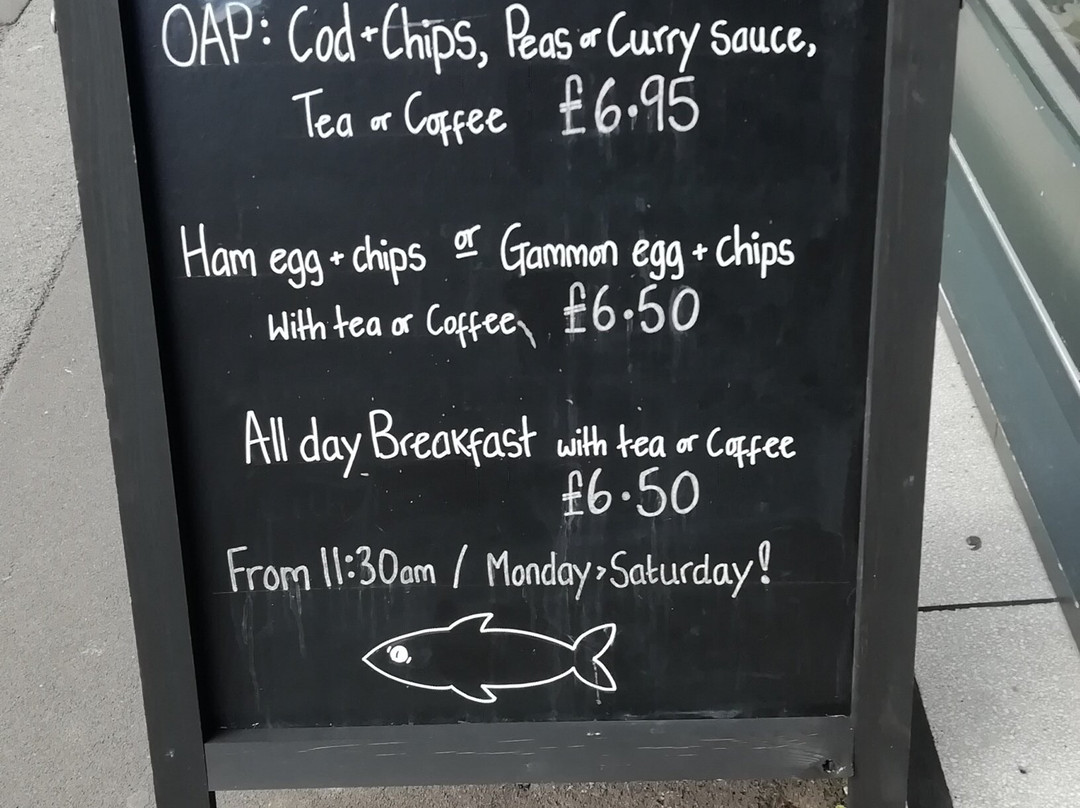 OAP: Cod + Chips, Peas or Curry Sauce,
Tea or Coffee £6.95
Ham egg + chips or Gammon egg + chips
With tea or Coffee, £6.50
All day Breakfast with tea or Coffee
£6.50
From 11:30am / Monday > Saturday!